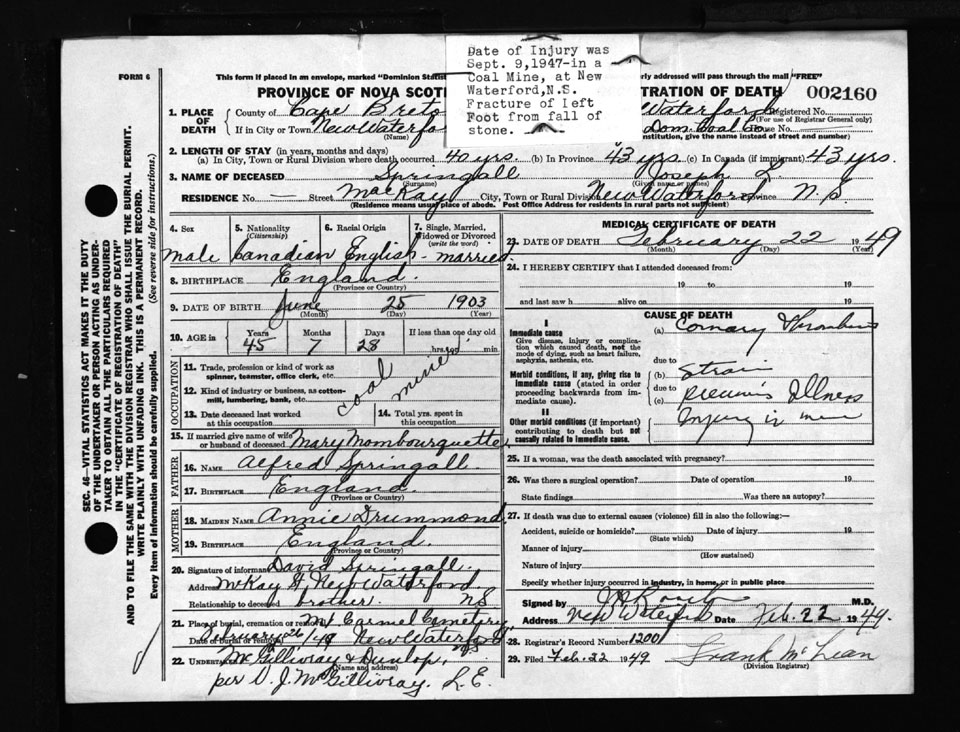 FORM 6
This form if placed in an envelope, marked "Dominion Statis
rly addressed will pass through the mail "FREE"
Date of Injury was
Sept. 9,1947-in a
Coal Mine, at New
Waterford,N.S.
Fracture of left
Foot from fall of
stone.
PROVINCE OF NOVA SCOTI
TRATION OF DEATH
002160
1. PLACE OF DEATH
County of Cape Breto
Waterford
Registered No.
(For use of Registrar General only)
If in City or Town New Waterfo
(Name)
Dom. Coal Co
House No.
nstitution, give the name instead of street and number)
2. LENGTH OF STAY (in years, months and days)
(a) In City, Town or Rural Division where death occurred 40 yrs. (b) In Province 43 yrs (c) In Canada (if immigrant) 43 yrs.
3. NAME OF DECEASED Springall Joseph L.
(Surname) (Given name or names)
RESIDENCE No. — Street MacKay City, Town or Rural Division New Waterford Province N.S.
(Residence means usual place of abode. Post Office Address for residents in rural parts not sufficient)
4. Sex
5. Nationality (Citizenship)
6. Racial Origin
7. Single, Married, Widowed or Divorced (write the word)
male Canadian English - married.
8. BIRTHPLACE England.
(Province or Country)
9. DATE OF BIRTH June 25 1903
(Month) (Day) (Year)
10. AGE in
Years Months Days If less than one day old
45 7 28 hrs. or min
OCCUPATION
11. Trade, profession or kind of work as spinner, teamster, office clerk, etc.
12. Kind of industry or business, as cotton-mill, lumbering, bank, etc.
coal mine
13. Date deceased last worked at this occupation
14. Total yrs. spent in this occupation
15. If married give name of wife or husband of deceased Mary Mombourquette
FATHER
16. NAME Alfred Springall
17. BIRTHPLACE England.
(Province or Country)
MOTHER
18. MAIDEN NAME Annie Drummond
19. BIRTHPLACE England.
(Province or Country)
20. Signature of informant David Springall.
Address McKay St New Waterford
Relationship to deceased brother. NS
21. Place of burial, cremation or removal Mt Carmel Cemetery
Date of burial or removal February 26/49 New Waterford
NS
22. UNDERTAKER McGillivray & Dunlop,
(Name and address)
per V. J. McGillivray. L.E.
MEDICAL CERTIFICATE OF DEATH
23. DATE OF DEATH February 22 1949
(Month) (Day) (Year)
24. I HEREBY CERTIFY that I attended deceased from:
19 to 19
and last saw h alive on 19
CAUSE OF DEATH
I
Immediate cause
Give disease, injury or complication which caused death, not the mode of dying, such as heart failure, asphyxia, asthenia, etc.
(a) Coronary Thrombosis
due to
Morbid conditions, if any, giving rise to Immediate cause (stated in order proceeding backwards from immediate cause).
(b) Strain
due to
(c) previous Illness
II
Other morbid conditions (if important) contributing to death but not causally related to immediate cause.
Injury in mine
25. If a woman, was the death associated with pregnancy?
26. Was there a surgical operation? Date of operation 19
State findings Was there an autopsy?
27. If death was due to external causes (violence) fill in also the following:—
Accident, suicide or homicide? Date of injury 19
(State which)
Manner of injury
(How sustained)
Nature of injury
Specify whether injury occurred in industry, in home, or in public place
Signed by M.D.
Address New Waterford Date Feb. 22 1949.
28. Registrar's Record Number 1200
29. Filed Feb. 22 1949 Frank McLean
(Division Registrar)
SEC. 46—VITAL STATISTICS ACT MAKES IT THE DUTY
OF THE UNDERTAKER OR PERSON ACTING AS UNDER-
TAKER TO OBTAIN ALL THE PARTICULARS REQUIRED
IN THE "CERTIFICATE OF REGISTRATION OF DEATH"
AND TO FILE THE SAME WITH THE DIVISION REGISTRAR WHO SHALL ISSUE THE BURIAL PERMIT.
WRITE PLAINLY WITH UNFADING INK. THIS IS A PERMANENT RECORD.
Every item of information should be carefully supplied.
(See reverse side for instructions.)